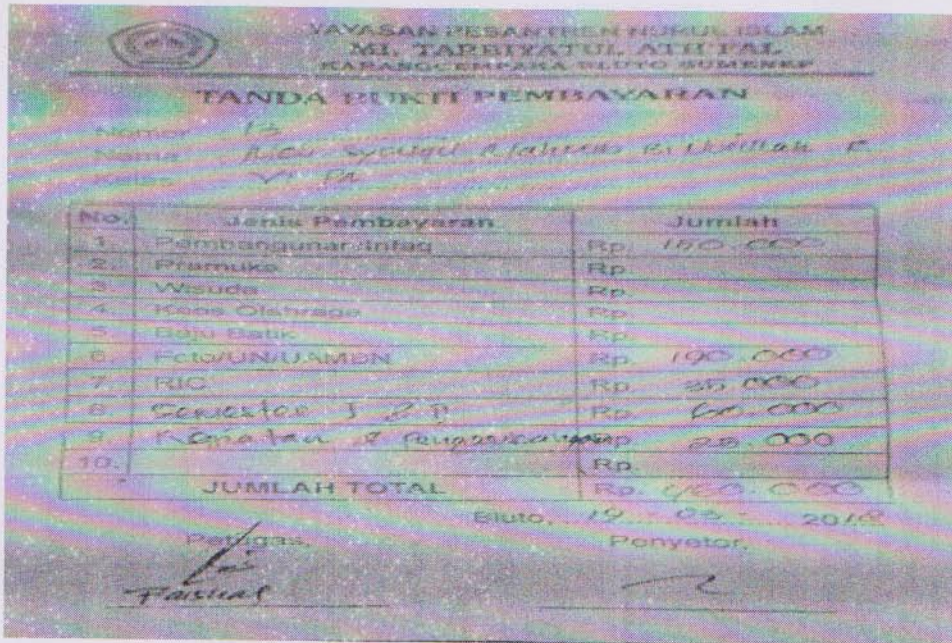 YAYASAN PESANTREN NURUL ISLAM
MI. TARBIYATUL ATHFAL
KARANGCEMPAKA BLUTO SUMENEP
TANDA BUKTI PEMBAYARAN
Nomor 13
Nama
Kelas VI PA
No. Jenis Pembayaran Jumlah
1. Pembangunan/Infaq Rp. 150.000
2. Pramuka Rp.
3. Wisuda Rp.
4. Kaos Olahraga Rp.
5. Baju Batik Rp.
6. Foto/UN/UAMBN Rp. 190.000
7. RIC Rp. 35.000
8. Semester I & II Rp. 60.000
9. Rp. 25.000
10. Rp.
JUMLAH TOTAL Rp. 460.000
Bluto, 2018
Petugas, Penyetor,